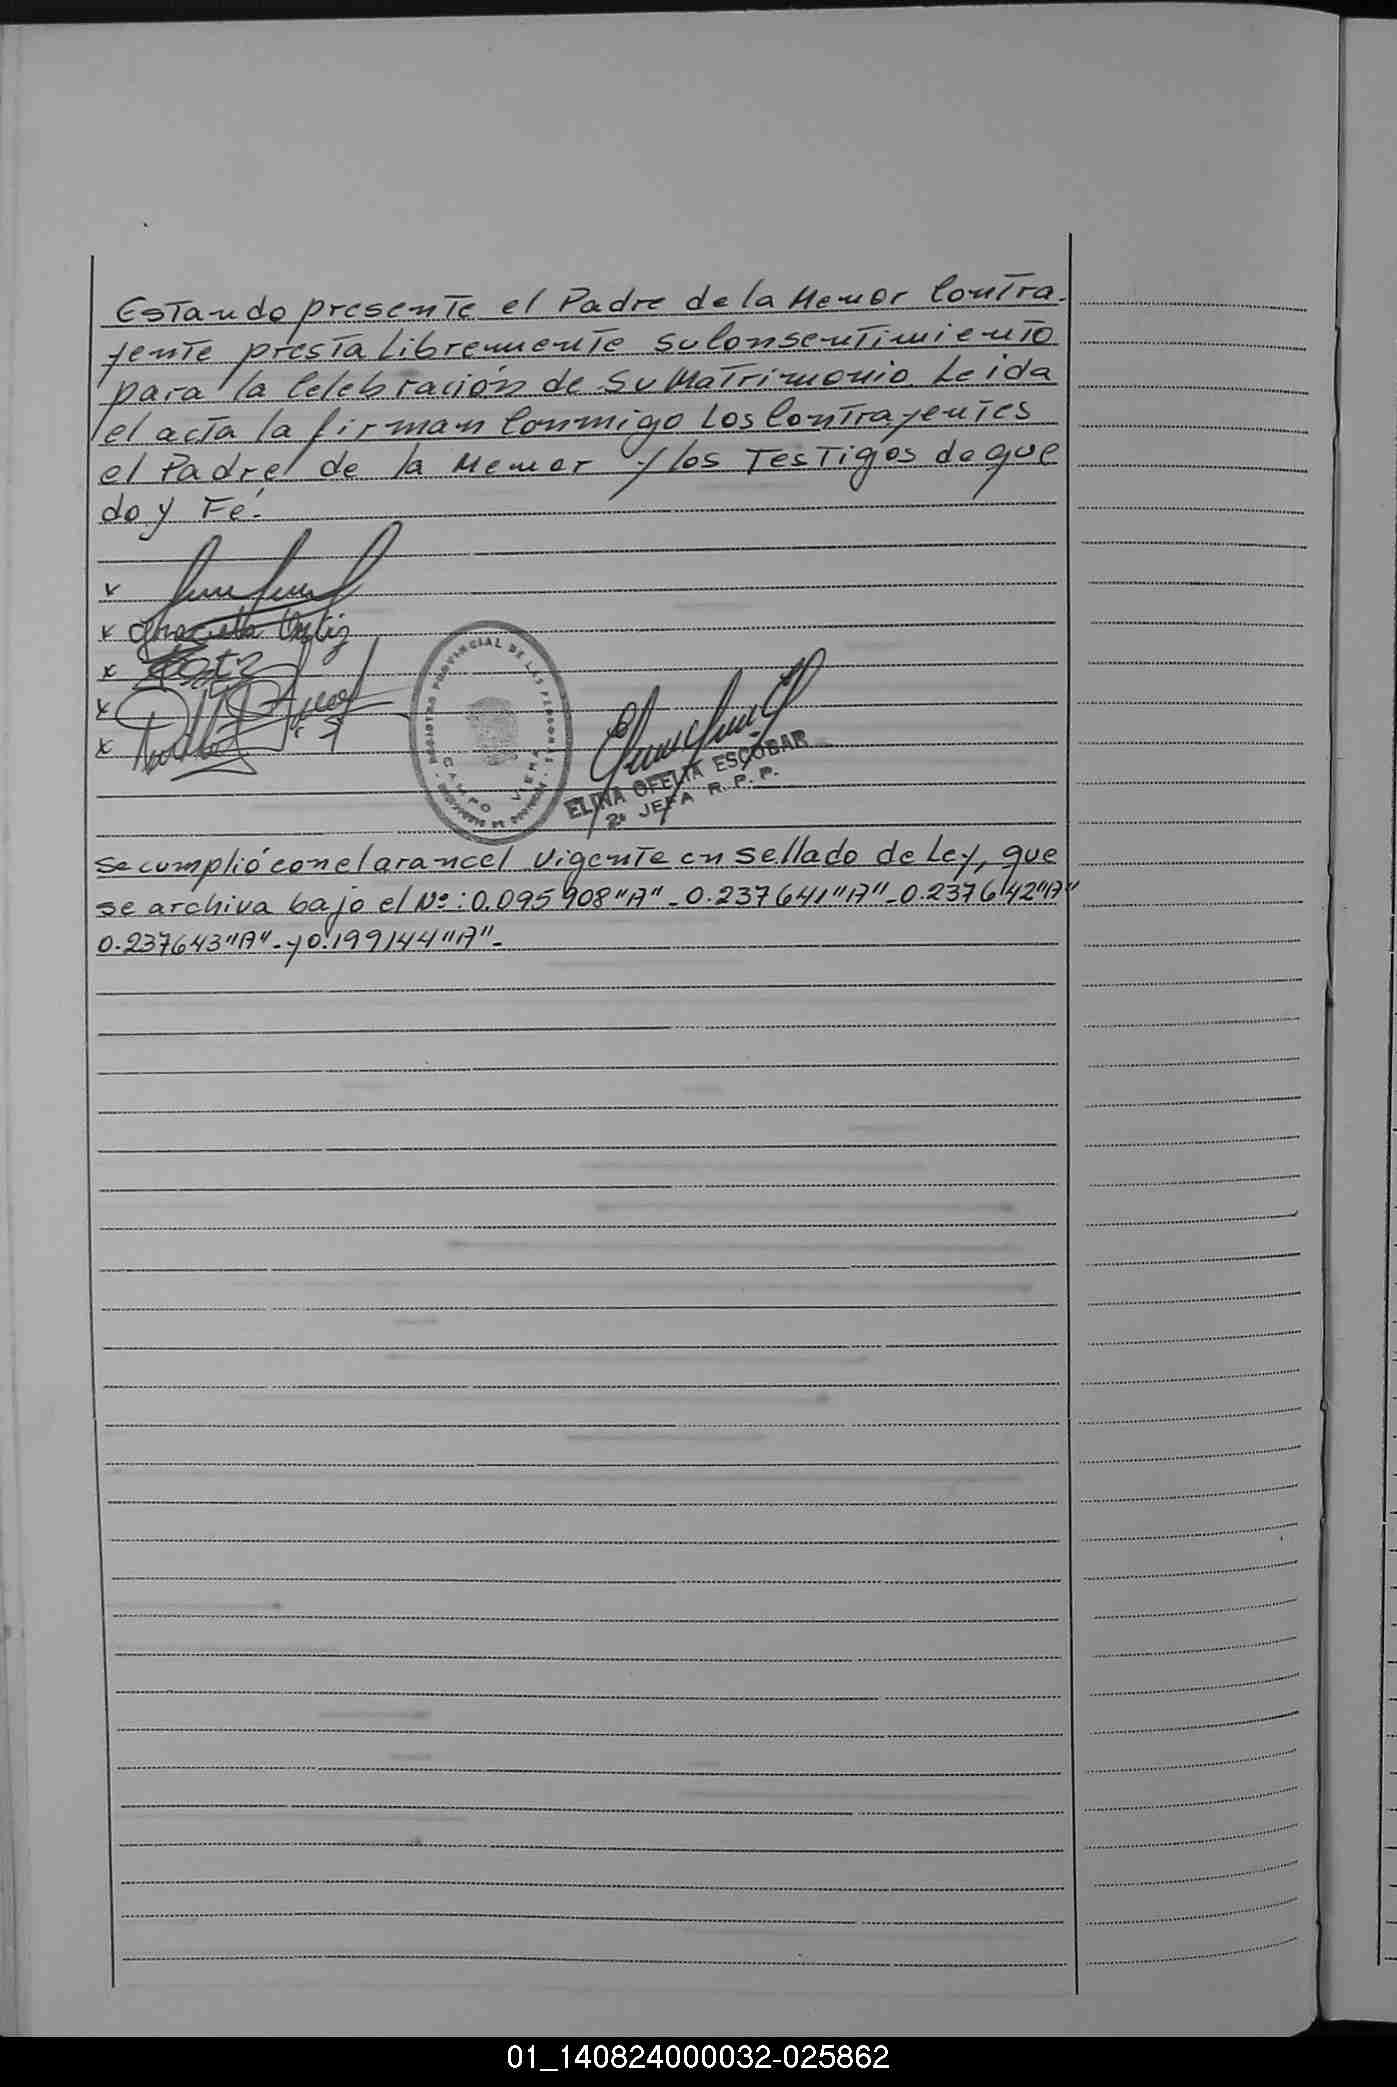 Estando presente el Padre de la Menor Contra-
yente presta Libremente su Consentimiento
para la Celebración de su Matrimonio. Leida
el acta la firman Conmigo Los Contrayentes
el Padre de la Menor y los Testigos de que
doy Fé.
x
x Graciela Ortiz
x
x
x
REGISTRO PROVINCIAL DE LAS PERSONAS
CAMPO VIERA
ELINA OFELIA ESCOBAR
2ª JEFA R. P. P.
Se cumplió con el arancel Vigente en Sellado de Ley, que
se archiva bajo el Nº: 0.095908"A"-0.237641"A"-0.237642"A"
0.237643"A"-y 0.199144"A"-
01_140824000032-025862